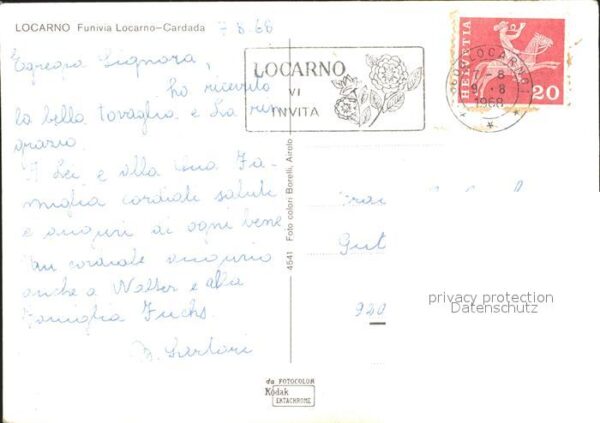 LOCARNO Funivia Locarno-Cardada
7.8.68
Egregia Signora,
ho ricevuto
la bella tovaglia e La rin
grazio.
A Lei e alla Sua Fa-
miglia cordiali saluti
e auguri di ogni bene
Un cordiale augurio
anche a Walter e alla
Famiglia Fuchs.
LOCARNO
VI
INVITA
6600 LOCARNO 1
7-8
9.8
1968
HELVETIA
20
4541 Foto colori Borelli, Airolo
Gut
920
privacy protection
Datenschutz
da FOTOCOLOR
Kodak
EKTACHROME